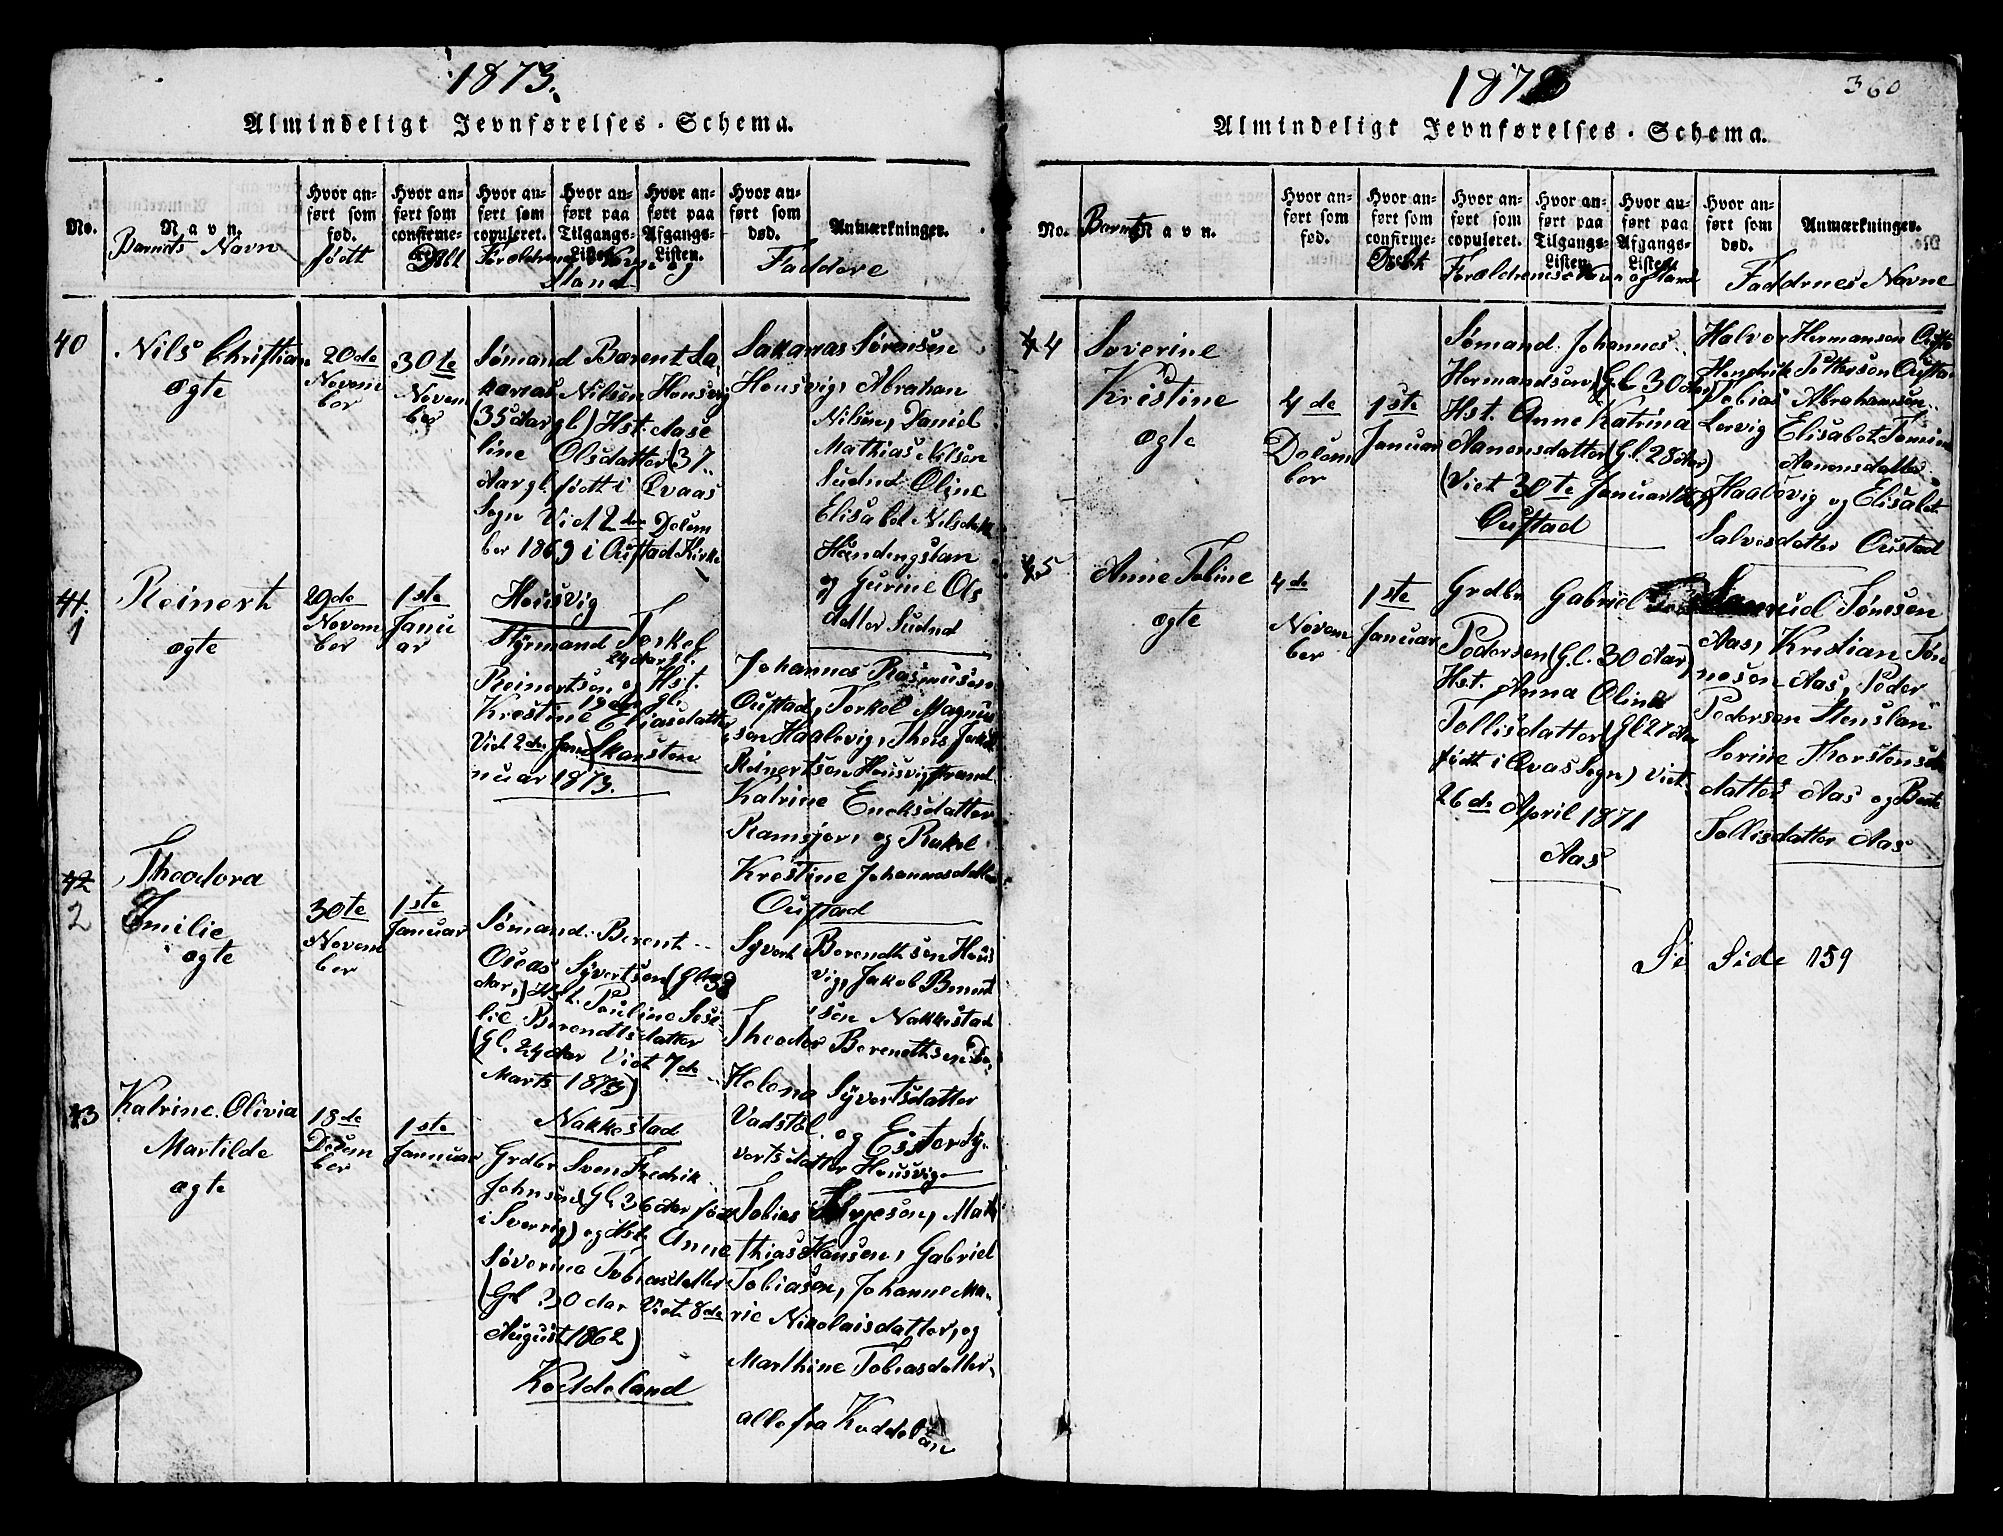 1873.
Almindeligt Jevnførelses-Schema.
No.
Navn.
Barnets Navn
Hvor an-
ført som
fød.
født
Hvor an-
ført som
confirme-
ret.
Døbt
Hvor an-
ført som
copuleret.
Hvor an-
ført paa
Tilgangs-
Listen.
Hvor an-
ført paa
Afgangs-
Listen.
Forældrenes Navn og
Stand
Hvor an-
ført som
død.
Anmærkninger.
Faddere
40
Nils Christian
ægte
20de
Novem
ber
30te
Novem
ber
Sømand Bærent Sa-
karias Nilsen Housvig
(35 Aar gl) Hst. Aase
line Olsdatter (37
Aar gl. født i Qvaas
Sogn Viet 2den Decem
ber 1869 i Oustad Kirke
Housvig
Sakarias Sørensen
Housvig, Abraham
Nilsen, Daniel
Mathias Nilsen
Sudnd Oline
Elisabet Nilsdatt
og Gurine Ols
datter Sudnd
41.
1
Reinert
ægte
29de
Novem
ber
1ste
Janu
ar
Styrmand Torkel
24 Aar gl.
Reinertsen og Hst.
19 Aar gl.
Kristine Eliasdatter
Viet 2den Ja
nuar 1873.
Skansten
Johannes Rasmusen
Oustad, Torkel Magnus
sen Haalevig, Theis Torkel
Reinertsen Housvigstrand
Katrine Encksdatter
Ramsjor, og Rakel
Kristine Johannesdatter
Oustad
42
2
Theodora
Emilie
ægte
30te
Novem
ber
1ste
Januar
Sømand Berent
Oueas Syvertsen (Gl 33
Aar,) Hst. Pauline Jose
lie Berendtsdatter
(Gl. 24 Aar Viet 7de
Marts 1873)
Nakkestad
Syvert Berendtsen Hous
vig, Jakob Berent
sen Nakkestad
Theodor Berendtsen Do,
Helena Syvertsdatter
Vadstøl og Ester Sy-
vertsdatter Housvig
43
Katrine Olivia
Martilde
ægte
18de
Decem
ber
1ste
Januar
Grdbr Sven Fredrik
Johnsen (Gl. 36 Aar født
i Sverrig) og Hst. Anne
Søverine Tobiasdatter
(Gl 30 Aar Viet 8de
August 1862)
Koddeland
Tobias Mat
thias Hansen, Gabriel
Tobiasen, Johanne Ma-
rie Nikolaisdatter, og
Marthine Tobiasdatter,
alle fra Koddelan
1873
360
Almindeligt Jevnførelses-Schema.
No.
Barnets Navn.
Hvor an-
ført som
fød.
Hvor an-
ført som
confirme-
ret.
Døbt
Hvor an-
ført som
copuleret.
Hvor an-
ført paa
Tilgangs-
Listen.
Hvor an-
ført paa
Afgangs-
Listen.
Forældrenes Navn og Stand
Hvor an-
ført som
død.
Anmærkninger.
Faddernes Navne
44
Søverine
Kristine
ægte
4de
Decem
ber
1ste
Januar
Sømand Johannes
Hermandsen, (Gl. 30 Aar)
Hst. Anne Katrina
Aanensdatter (Gl. 28 Aar)
(Viet 30te Januar
Oustad
Halvor Hermansen
Hendrik Pettersen Oustad
Tobias Abrahamsen
Lervig Elisabet
Aanensdatter
Haalevig og Elisabet
Salvesdatter Oustad
45
Anne Toline
ægte
4de
Novem
ber
1ste
Januar
Grdbr Gabriel
Pedersen (Gl. 30 Aar)
Hst. Anna Oline
Tollisdatter (Gl 21 Aar
født i Qvas Sogn) Viet
26de April 1871
Aas
Tønesen
Aas, Kristian Tøn
nesen Aas, Peder
Pedersen Stenslan
Sorine Thorstens
datter Aas og Berte
Tollisdatter Aas
Se Side 159